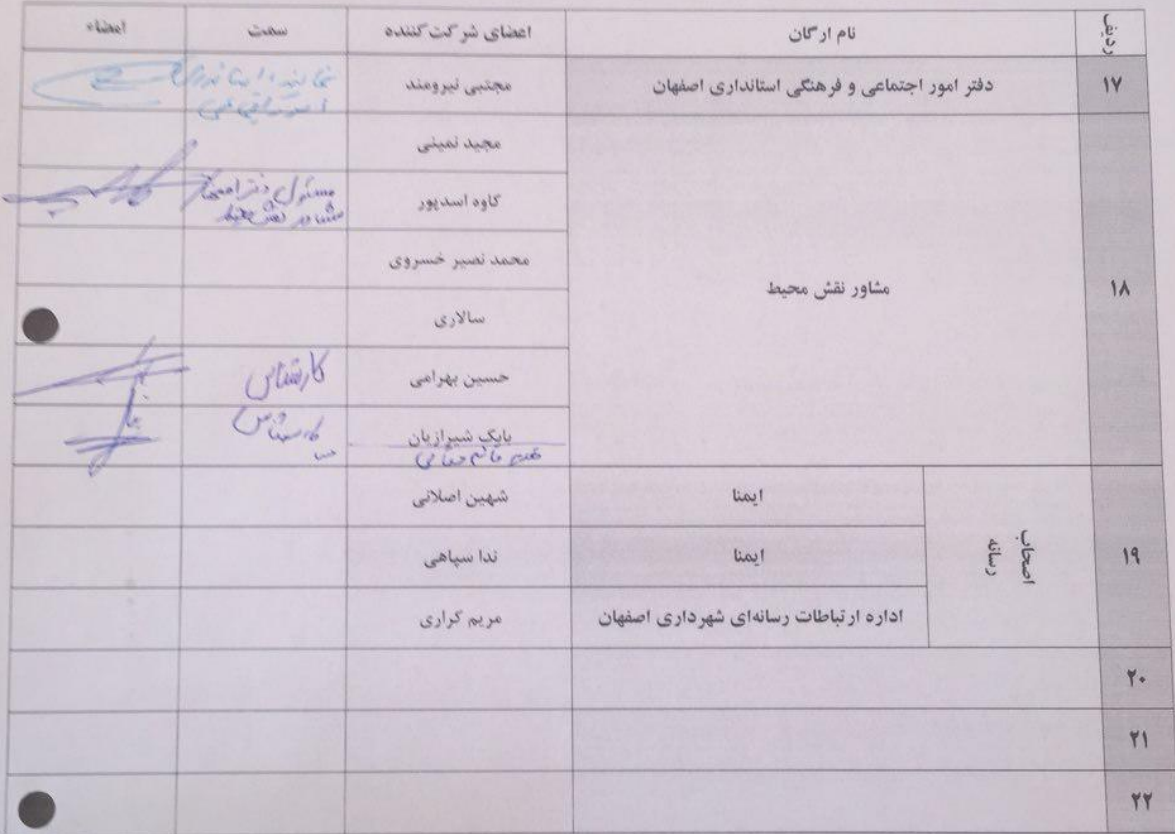 ردیف نام ارگان اعضای شرکت کننده سمت امضاء
۱۷ دفتر امور اجتماعی و فرهنگی استانداری اصفهان مجتبی نیرومند
۱۸ مشاور نقش محیط
مجید ثمینی
کاوه اسدپور مسئول دفتر
مشاور نقش محیط
محمد نصیر خسروی
سالاری
حسین بهرامی کارشناس
بابک شیرازیان کارشناس
۱۹ اصحاب رسانه
ایمنا شهین اصلانی
ایمنا ندا سپاهی
اداره ارتباطات رسانه‌ای شهرداری اصفهان مریم کراری
۲۰
۲۱
۲۲